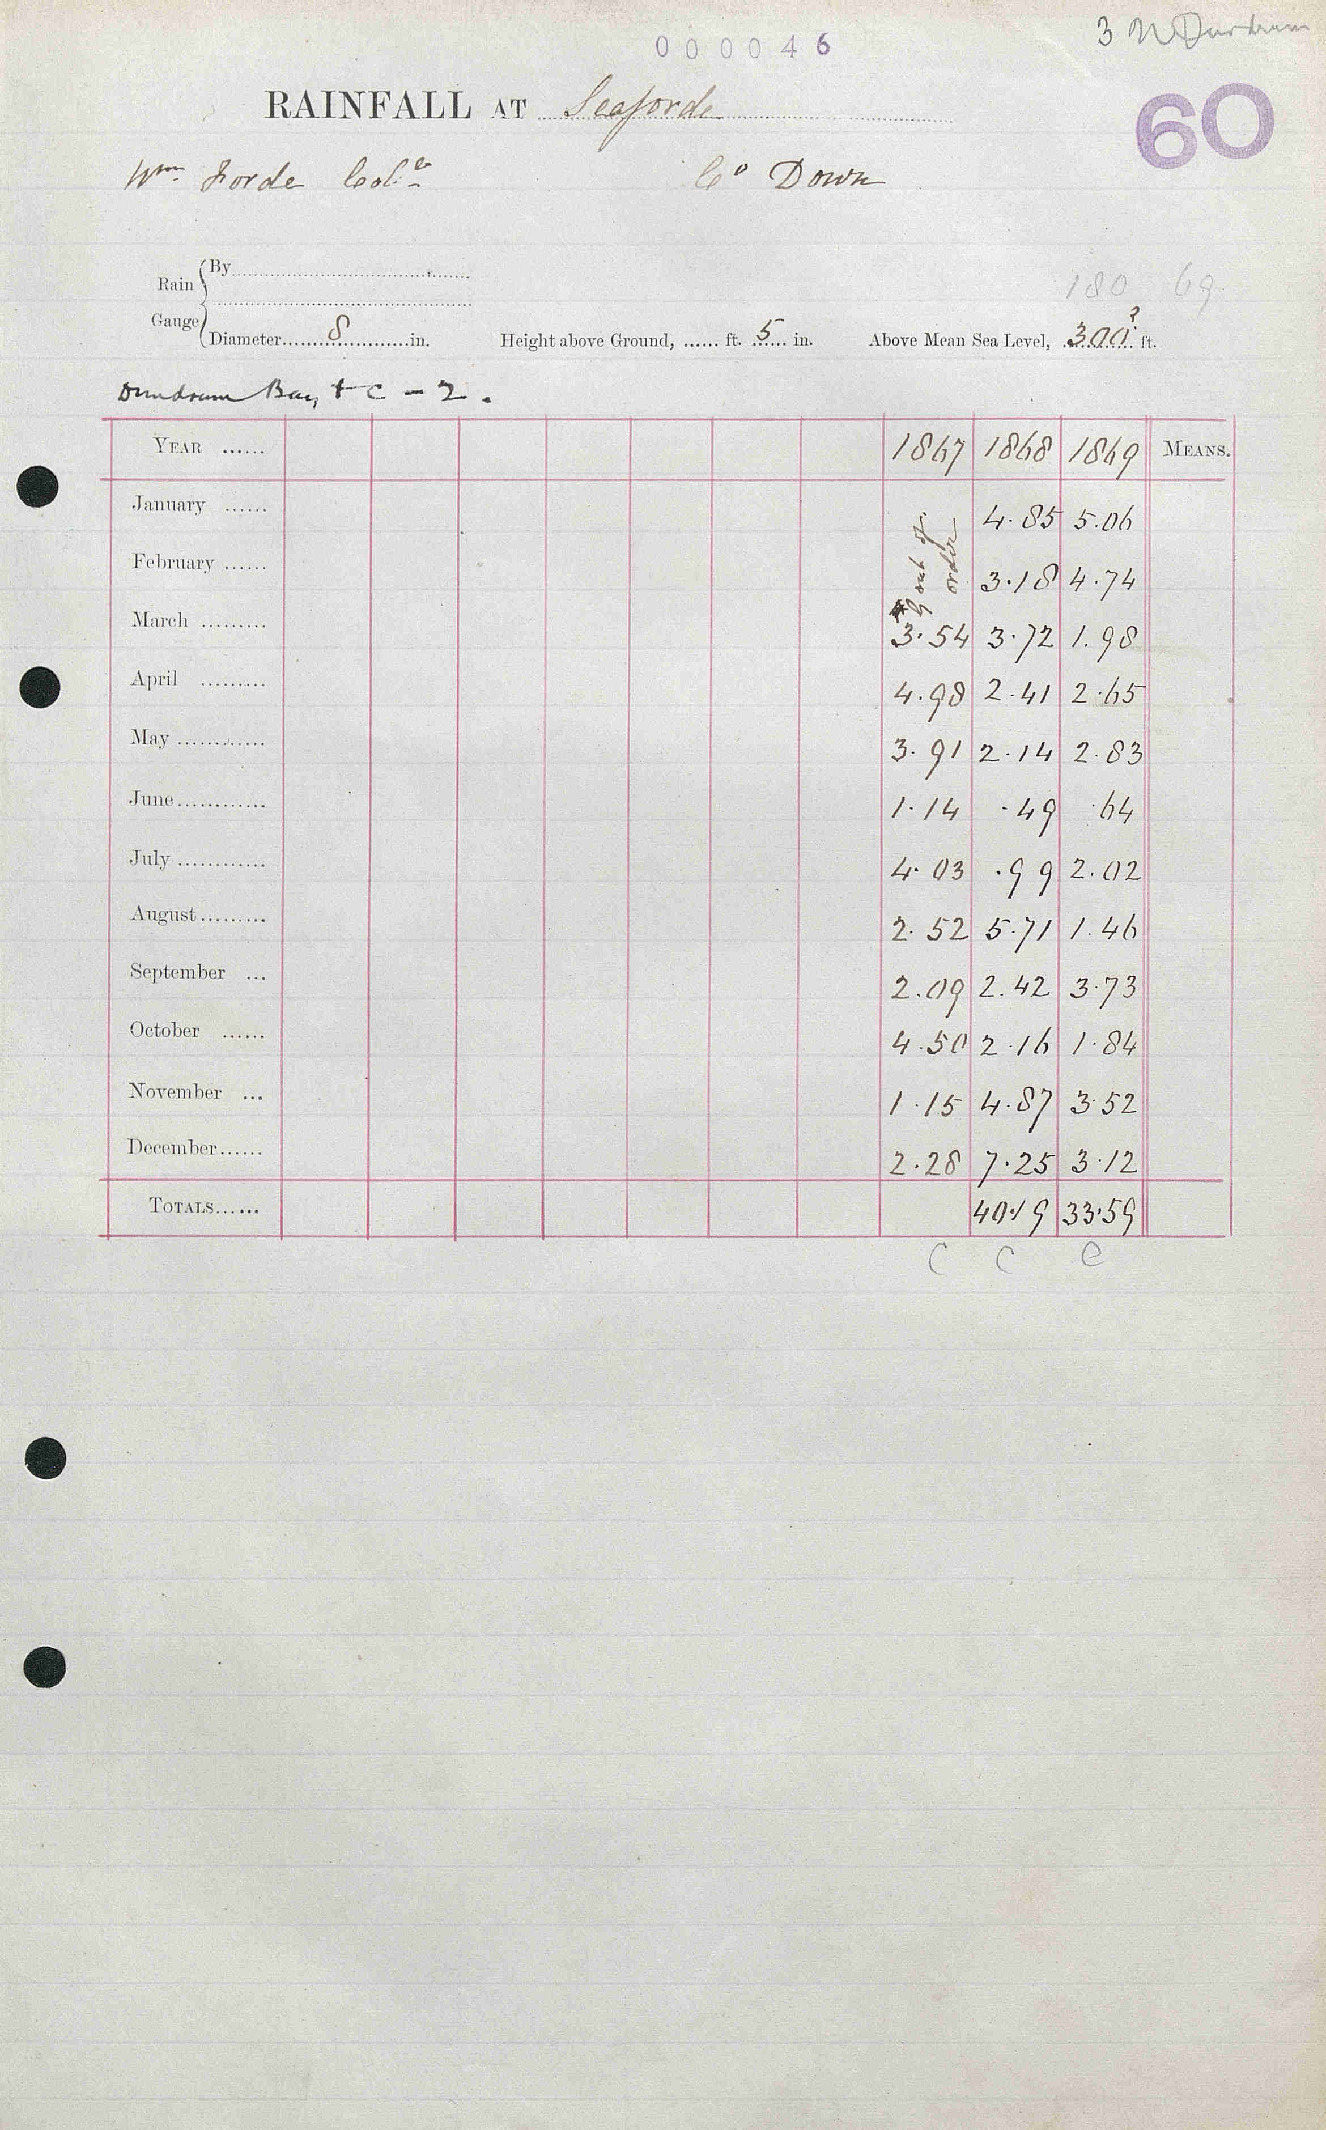 3 N Dundrum
000046
RAINFALL AT Seaforde
60
Wm. Forde Col. Co Down
Rain Gauge
By
180 69
Diameter 8 in. Height above Ground, ...... ft. 5 in. Above Mean Sea Level, 300? ft.
Dundrum Bay, + C - 2.
YEAR ...... 1867 1868 1869 MEANS.
January ...... 4.85 5.06
February ...... 3.18 4.74
g out of order
March ......... 3.54 3.72 1.98
April ......... 4.98 2.41 2.65
May ............ 3.91 2.14 2.83
June ............ 1.14 .49 .64
July ............ 4.03 .99 2.02
August ......... 2.52 5.71 1.46
September ... 2.09 2.42 3.73
October ...... 4.50 2.16 1.84
November ... 1.15 4.87 3.52
December ...... 2.28 7.25 3.12
TOTALS ...... 40.19 33.59
C C C